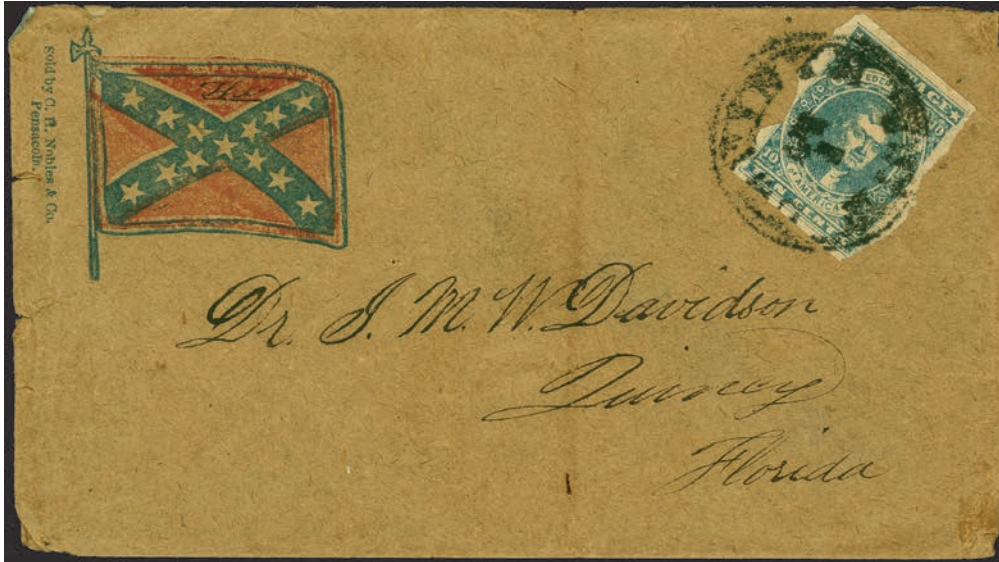 Sold by C. P. Nobles & Co.
Pensacola.
The
TEN CENTS
Dr. J. M. W. Davidson
Quincy
Florida